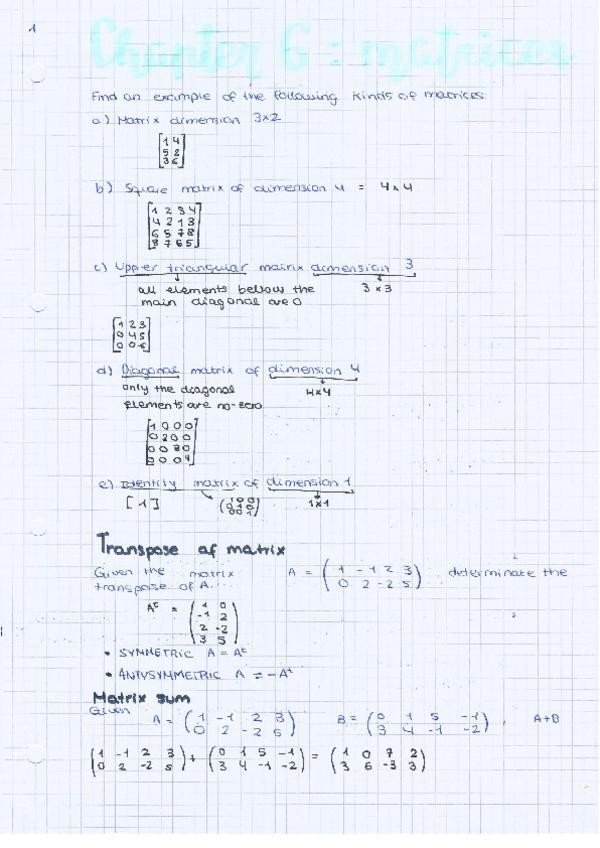 1
Chapter 6 : matrices
Find an example of the following kinds of matrices:
a) Matrix dimension 3x2
1 4
5 2
3 6
b) Square matrix of dimension 4 = 4x4
1 2 3 4
4 2 1 3
6 5 7 8
8 7 6 5
c) Upper triangular matrix dimension 3
all elements bellow the
main diagonal are 0
3 x 3
1 2 3
0 4 5
0 0 6
d) Diagonal matrix of dimension 4
only the diagonal
elements are no-zero
4x4
1 0 0 0
0 2 0 0
0 0 3 0
0 0 0 4
e) Identity matrix of dimension 1
[1]
1 0 0
0 1 0
0 0 1
1x1
Transpose of matrix
Given the matrix A = ( 1 -1 2 3 / 0 2 -2 5 ) , determinate the
transpose of A.
Aᵗ = ( 1 0 / -1 2 / 2 -2 / 3 5 )
• SYMMETRIC A = Aᵗ
• ANTYSYMMETRIC A = -Aᵗ
Matrix sum
Given A = ( 1 -1 2 3 / 0 2 -2 5 ) B = ( 0 1 5 -1 / 3 4 -1 -2 ) , A+B
( 1 -1 2 3 / 0 2 -2 5 ) + ( 0 1 5 -1 / 3 4 -1 -2 ) = ( 1 0 7 2 / 3 6 -3 3 )